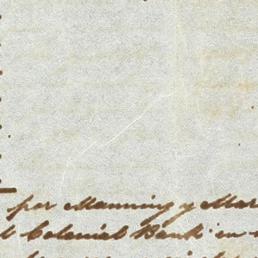 per Manning y Mar
l Colonial Bank en